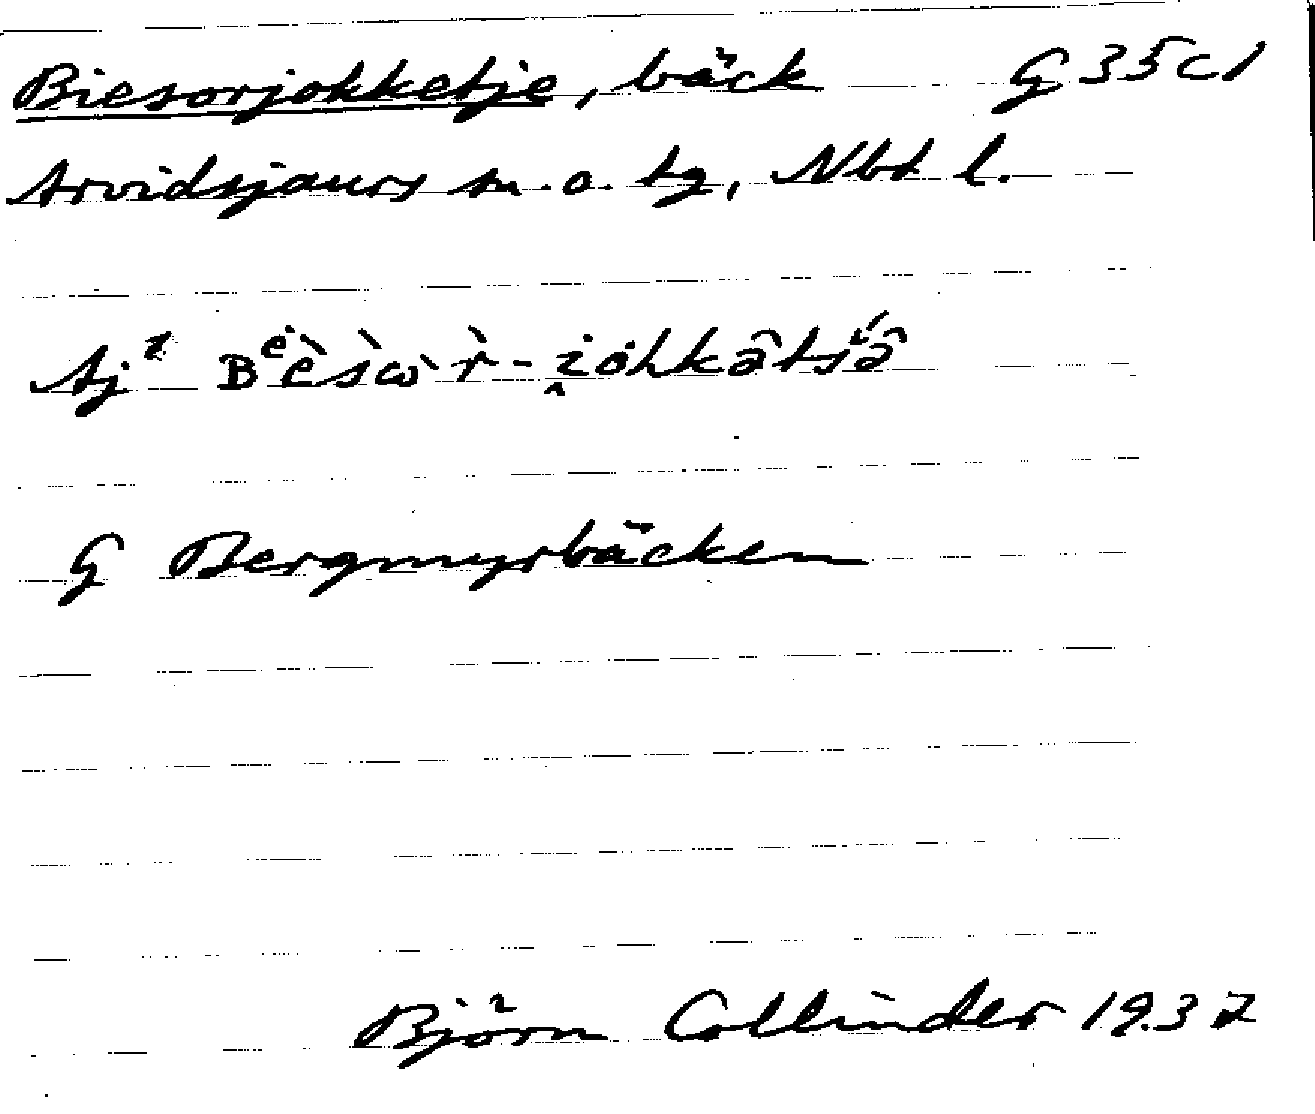 Biesorjokketje, bäck G 35 c 1
Arvidsjaurs sn. o. tg, Nbt l.
Aj²
G Bergmyrbäcken
Björn Collinder 1937